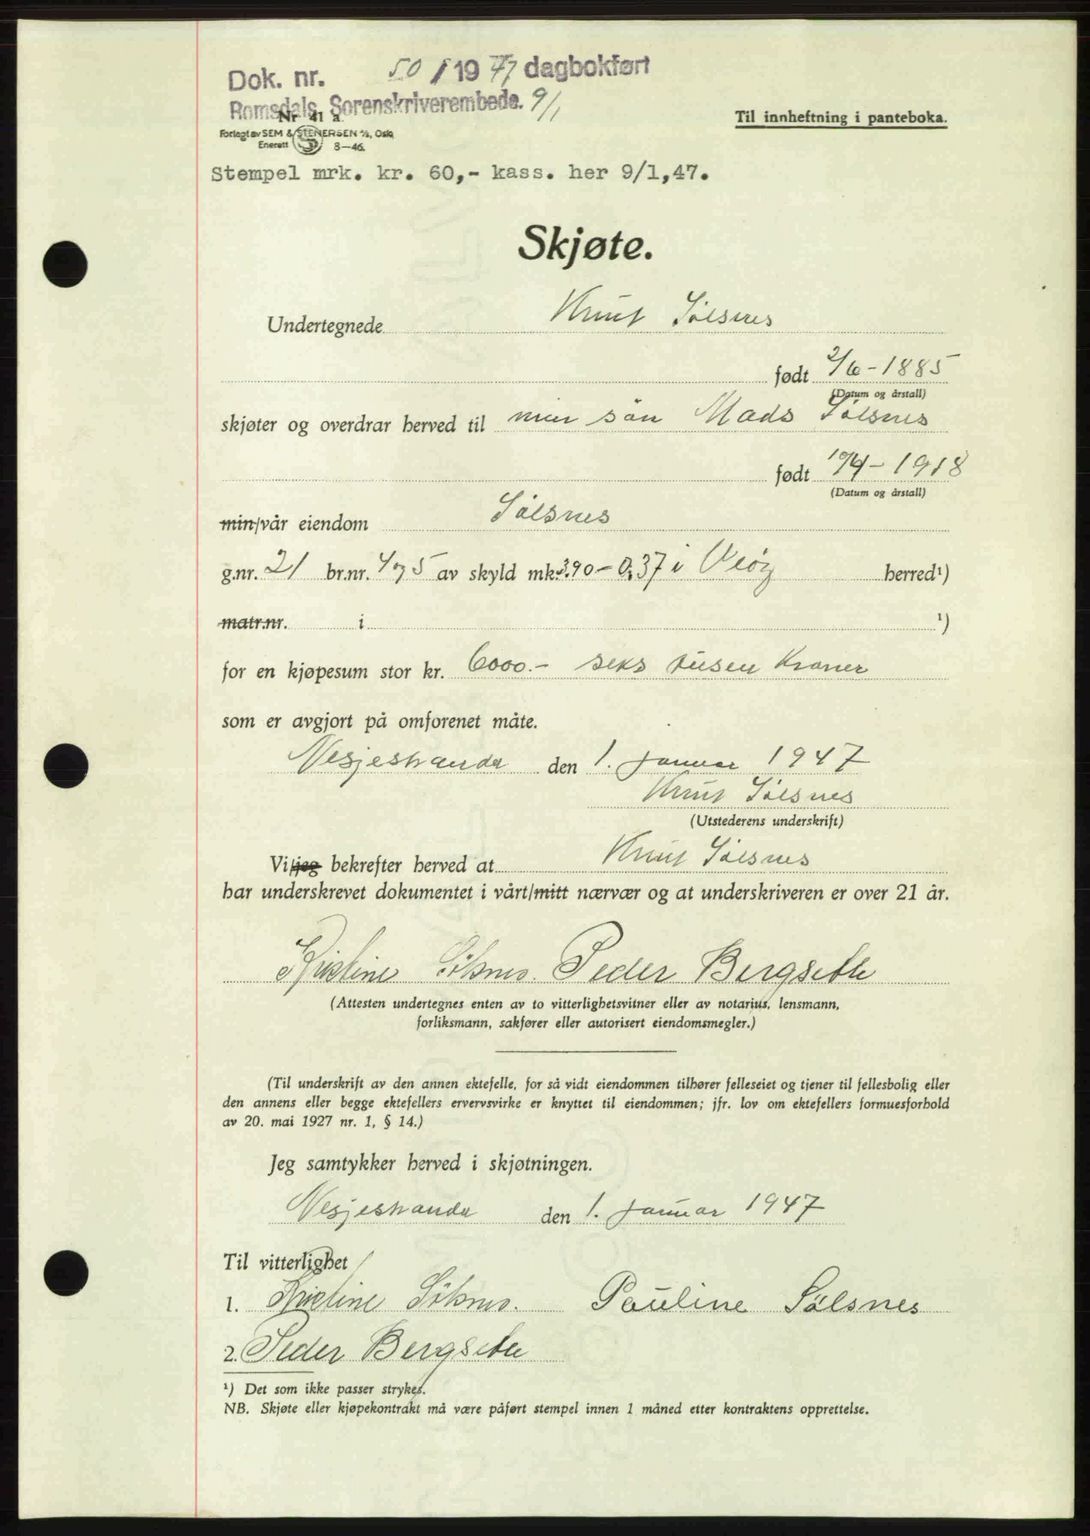 Dok. nr. 50 / 1947 dagbokført
Romsdals Sorenskriverembede. 9/1
Nr. 41 a.
Forlegt av SEM & STENERSEN A/S, Oslo
Enerett 8—46.
Til innheftning i panteboka.
Stempel mrk. kr. 60,- kass. her 9/1,47.
Skjøte.
Undertegnede Knut Sølsnes
født 2/6-1885
(Datum og årstall)
skjøter og overdrar herved til min søn Mads Sølsnes
født 19/4-1918
(Datum og årstall)
min/vår eiendom Sølsnes
g.nr. 21 br.nr. 4 og 5 av skyld mk. 3.90 - 0.37 i Veøy herred¹)
matr.nr. i ¹)
for en kjøpesum stor kr. 6000.- seks tusen Kroner
som er avgjort på omforenet måte.
Nesjestranda den 1. januar 1947
Knut Sølsnes
(Utstederens underskrift)
Vi/jeg bekrefter herved at Knut Sølsnes
har underskrevet dokumentet i vårt/mitt nærvær og at underskriveren er over 21 år.
Kristine Sølsnes. Peder Bergsethe
(Attesten undertegnes enten av to vitterlighetsvitner eller av notarius, lensmann,
forliksmann, sakfører eller autorisert eiendomsmegler.)
(Til underskrift av den annen ektefelle, for så vidt eiendommen tilhører felleseiet og tjener til fellesbolig eller
den annens eller begge ektefellers ervervsvirke er knyttet til eiendommen; jfr. lov om ektefellers formuesforhold
av 20. mai 1927 nr. 1, § 14.)
Jeg samtykker herved i skjøtningen.
Nesjestranda den 1. januar 1947
Til vitterlighet
1. Kristine Sølsnes. Pauline Sølsnes
2. Peder Bergsethe
¹) Det som ikke passer strykes.
NB. Skjøte eller kjøpekontrakt må være påført stempel innen 1 måned etter kontraktens opprettelse.